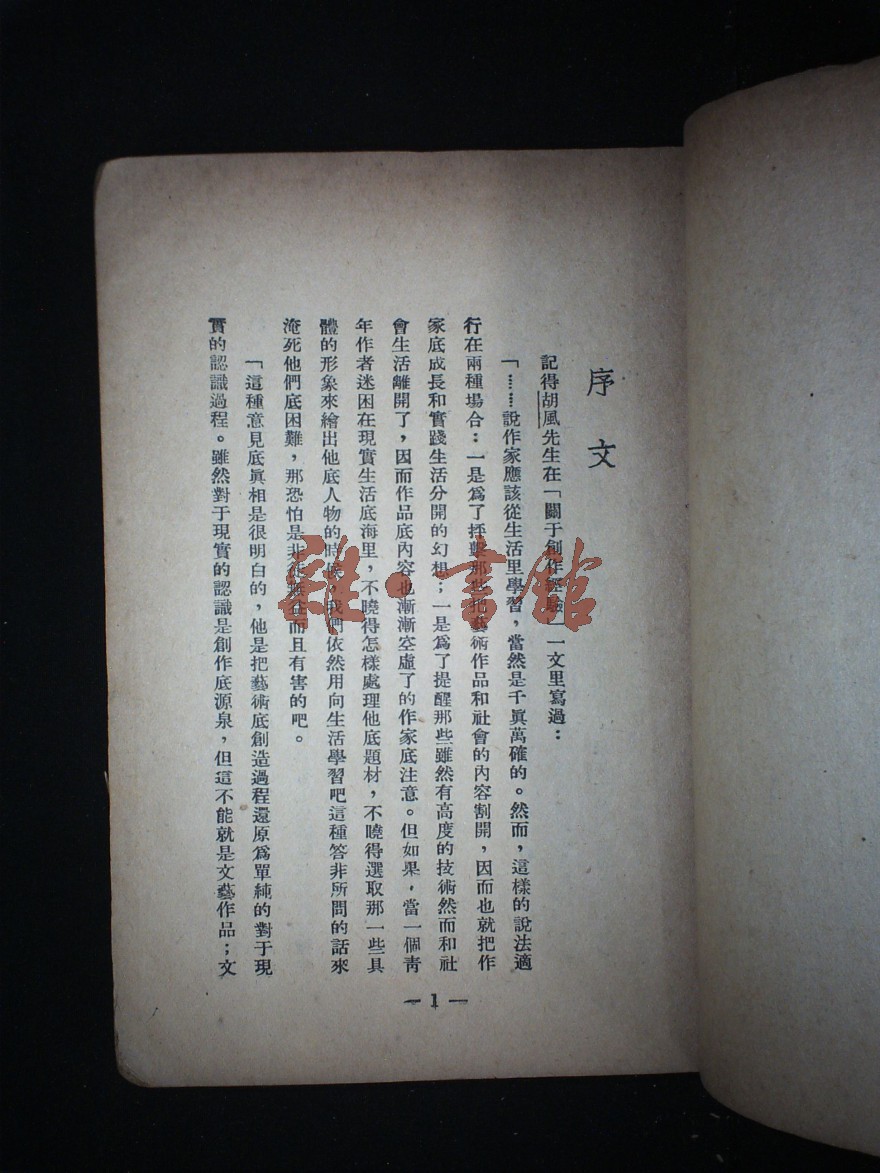 序文
記得胡風先生在「關于創作經驗」一文里寫過：
「……說作家應該從生活里學習，當然是千眞萬確的。然而，這樣的說法適
行在兩種場合：一是爲了抨擊那些把藝術作品和社會的內容割開，因而也就把作
家底成長和實踐生活分開的幻想；一是爲了提醒那些雖然有高度的技術然而和社
會生活離開了，因而作品底內容也漸漸空虛了的作家底注意。但如果，當一個靑
年作者迷困在現實生活底海里，不曉得怎樣處理他底題材，不曉得選取那一些具
體的形象來繪出他底人物的時候，我們依然用向生活學習吧這種答非所問的話來
淹死他們底困難，那恐怕是非徒無益而且有害的吧。
「這種意見底眞相是很明白的，他是把藝術底創造過程還原爲單純的對于現
實的認識過程。雖然對于現實的認識是創作底源泉，但這不能就是文藝作品；文
—1—
雜·書館